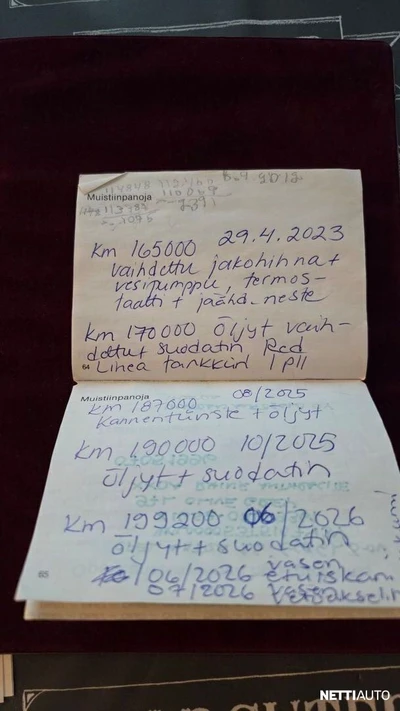 Muistiinpanoja
Km 165000 29.4.2023
vaihdettu jakohihna +
vesipumppu, termos-
taatti + jäähd. neste
Km 170000 Öljyt vaih-
dettut suodatin Red
Linea tankkiin 1 pll
64
Muistiinpanoja 08/2025
Km 187000
Kannentiiviste + öljyt
Km 190000 10/2025
Öljyt + suodatin
Km 199200 06/2026
öljyt + suodatin
06/2026 vasen etuiskari
07/2026 vasen
65
NETTIAUTO